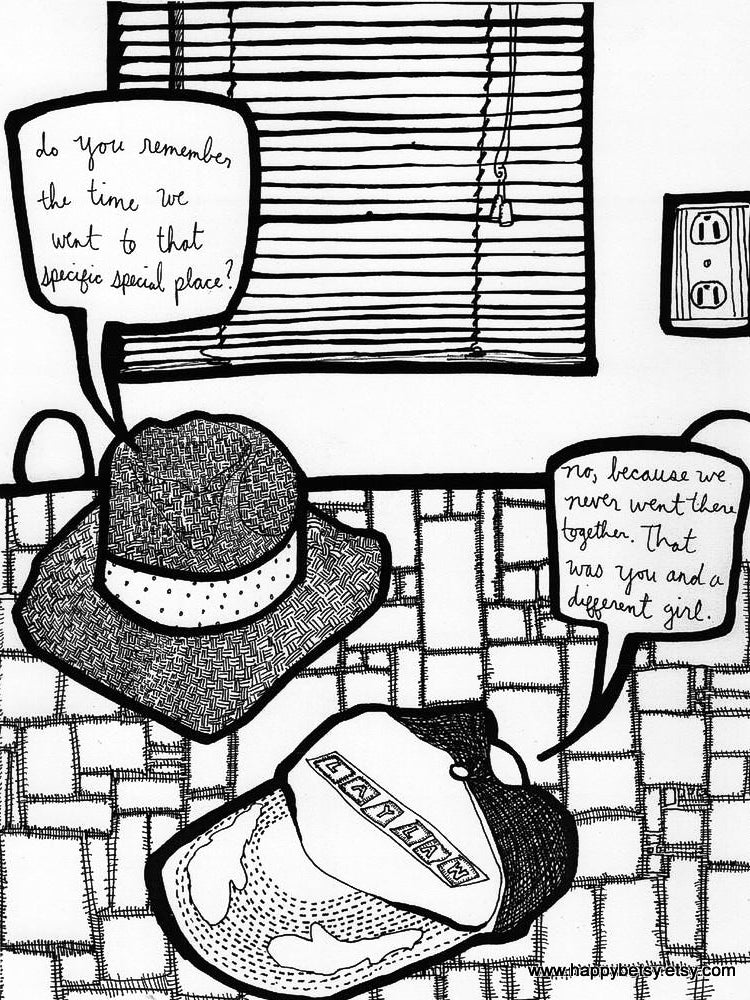 do you remember
the time we
went to that
specific special place?
no, because we
never went there
together. That
was you and a
different girl.
LAY LAW
www.happybetsy.etsy.com